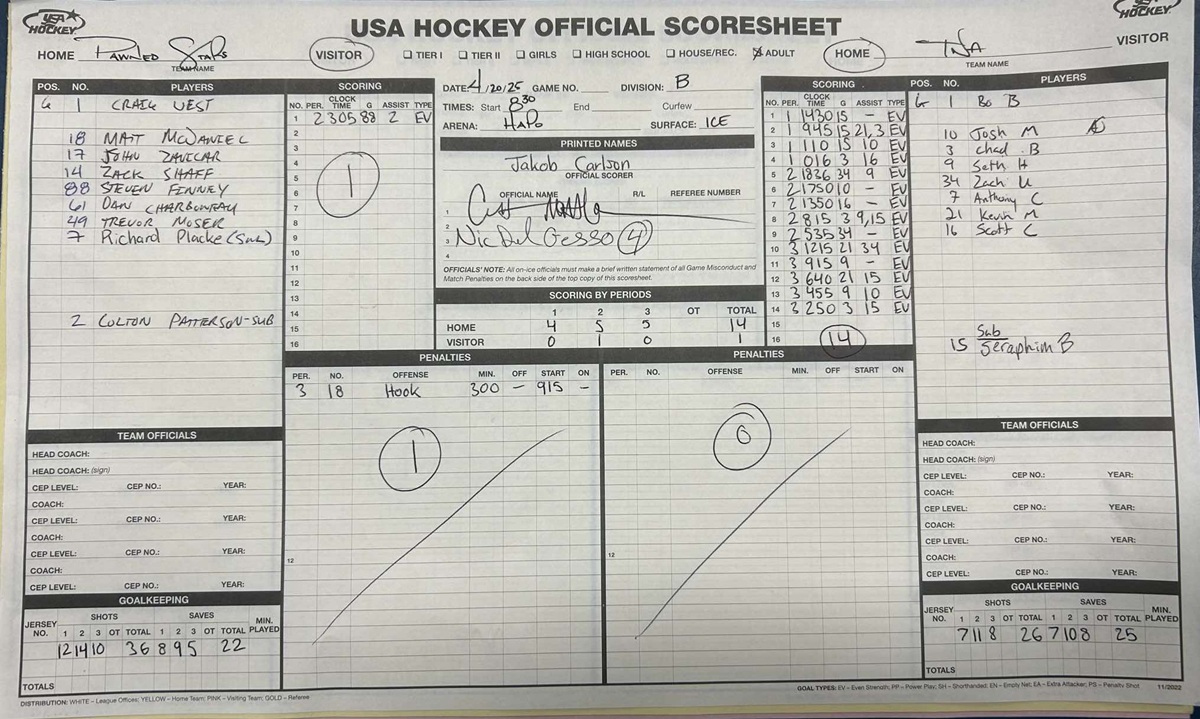 USA HOCKEY
USA HOCKEY OFFICIAL SCORESHEET
HOCKEY
HOME Pawned Stars VISITOR
TEAM NAME
☐ TIER I ☐ TIER II ☐ GIRLS ☐ HIGH SCHOOL ☐ HOUSE/REC. ☒ ADULT
HOME TNA VISITOR
TEAM NAME
POS. NO. PLAYERS
G 1 CRAIG VEST
18 MATT McDANIEL
17 JOHN ZAVICAR
14 ZACK SHAFF
88 STEVEN FINNEY
61 DAN CHARBONEAU
49 TREVOR MOSER
7 Richard Placke (Sub)
2 COLTON PATTERSON-SUB
SCORING
NO. PER. CLOCK TIME G ASSIST TYPE
1 2 305 88 2 EV
2
3
4
5
6
7
8
9
10
11
12
13
14
15
16
1
DATE: 4/20/25 GAME NO. DIVISION: B
TIMES: Start 830 End Curfew
ARENA: HAPO SURFACE: ICE
PRINTED NAMES
Jakob Carlson
OFFICIAL SCORER
OFFICIAL NAME R/L REFEREE NUMBER
1
2
3 Nic Del Gesso (4)
4
OFFICIALS' NOTE: All on-ice officials must make a brief written statement of all Game Misconduct and
Match Penalties on the back side of the top copy of this scoresheet.
SCORING BY PERIODS
1 2 3 OT TOTAL
HOME 4 5 5 14
VISITOR 0 1 0 1
SCORING
NO. PER. CLOCK TIME G ASSIST TYPE
1 1 1430 15 - EV
2 1 945 15 21,3 EV
3 1 110 15 10 EV
4 1 016 3 16 EV
5 2 1836 34 9 EV
6 2 1750 10 - EV
7 2 1350 16 - EV
8 2 815 3 9,15 EV
9 2 535 34 - EV
10 3 1215 21 34 EV
11 3 915 9 - EV
12 3 640 21 15 EV
13 3 455 9 10 EV
14 3 250 3 15 EV
15
16 14
POS. NO. PLAYERS
G 1 Bo B
10 Josh M
3 Chad B
9 Seth H
34 Zach U
7 Anthony C
21 Kevin M
16 Scott C
Sub
15 Seraphim B
PENALTIES
PER. NO. OFFENSE MIN. OFF START ON
3 18 Hook 300 - 915 -
1
12
PENALTIES
PER. NO. OFFENSE MIN. OFF START ON
0
12
TEAM OFFICIALS
HEAD COACH:
HEAD COACH: (sign)
CEP LEVEL: CEP NO.: YEAR:
COACH:
CEP LEVEL: CEP NO.: YEAR:
COACH:
CEP LEVEL: CEP NO.: YEAR:
COACH:
CEP LEVEL: CEP NO.: YEAR:
GOALKEEPING
JERSEY NO. SHOTS SAVES MIN. PLAYED
1 2 3 OT TOTAL 1 2 3 OT TOTAL
12 14 10 36 8 9 5 22
TOTALS
TEAM OFFICIALS
HEAD COACH:
HEAD COACH: (sign)
CEP LEVEL: CEP NO.: YEAR:
COACH:
CEP LEVEL: CEP NO.: YEAR:
COACH:
CEP LEVEL: CEP NO.: YEAR:
COACH:
CEP LEVEL: CEP NO.: YEAR:
GOALKEEPING
JERSEY NO. SHOTS SAVES MIN. PLAYED
1 2 3 OT TOTAL 1 2 3 OT TOTAL
7 11 8 26 7 10 8 25
TOTALS
DISTRIBUTION: WHITE – League Offices; YELLOW – Home Team; PINK – Visiting Team; GOLD – Referee
GOAL TYPES: EV – Even Strength; PP – Power Play; SH – Shorthanded; EN – Empty Net; EA – Extra Attacker; PS – Penalty Shot 11/2022